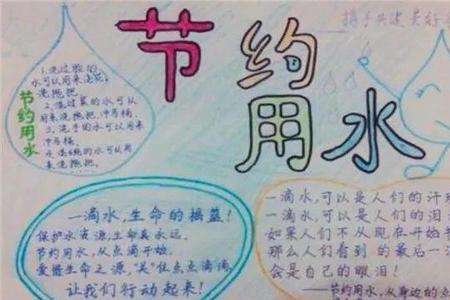 节约用水
携手共建 美好
节约用水
1.洗过脸的
水可以用来浇花,
洗拖把.
2.洗过菜的水可以
用来洗拖把.冲马桶.
3.洗手的水可以用来
冲马桶.
洗拖把.
一滴水,生命的摇篮!
保护水资源,生命真永远.
节约用水,从点滴开始.
爱惜生命之源,"关"住点点滴滴
让我们行动起来!
一滴水,可以是人们的汗
一滴水,可以是人们的泪
如果人们不从现在开始节
那么人们看到的最后一
会是自己的眼泪!
——节约用水,从身边的点